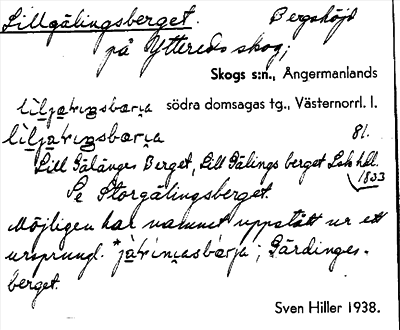 Lillgälingsberget. Bergshöjd
på Yttereds skog;
Skogs s:n., Ångermanlands
södra domsagas tg., Västernorrl. l.
81.
Lill Gälänges Berget, Lill Gälings berget Lsk hdl.
1833
Se Storgälingsberget.
Möjligen har namnet uppstått ur ett
ursprungl. Gärdinges-
berget.
Sven Hiller 1938.